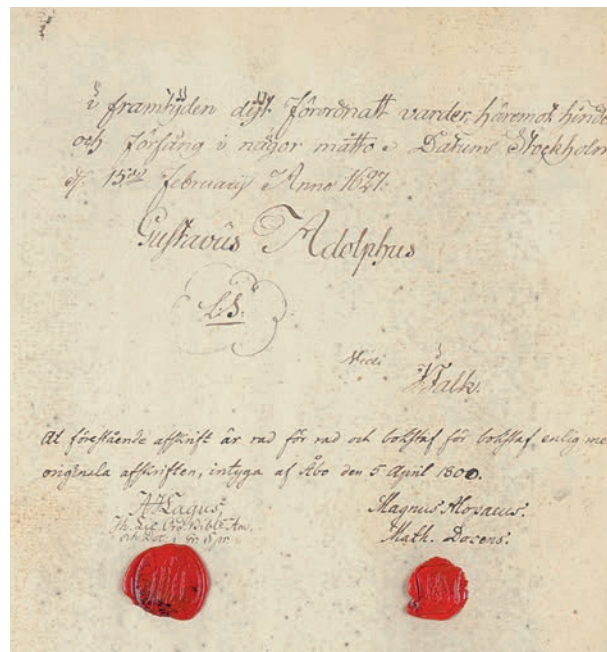 i framtijden dijt förordnatt varder, häremot hinder
och förfång i någor måtto. Datum Stockholm
d. 15 February Anno 1627.
Gustavus Adolphus
L.S.
Vidi
At förestående afskrift är rad för rad och bokstaf för bokstaf enlig med
originala afskriften, intyga af Åbo den 5 April 1800.
Lagus.
Magnus Alopaeus.
Math. Docens.